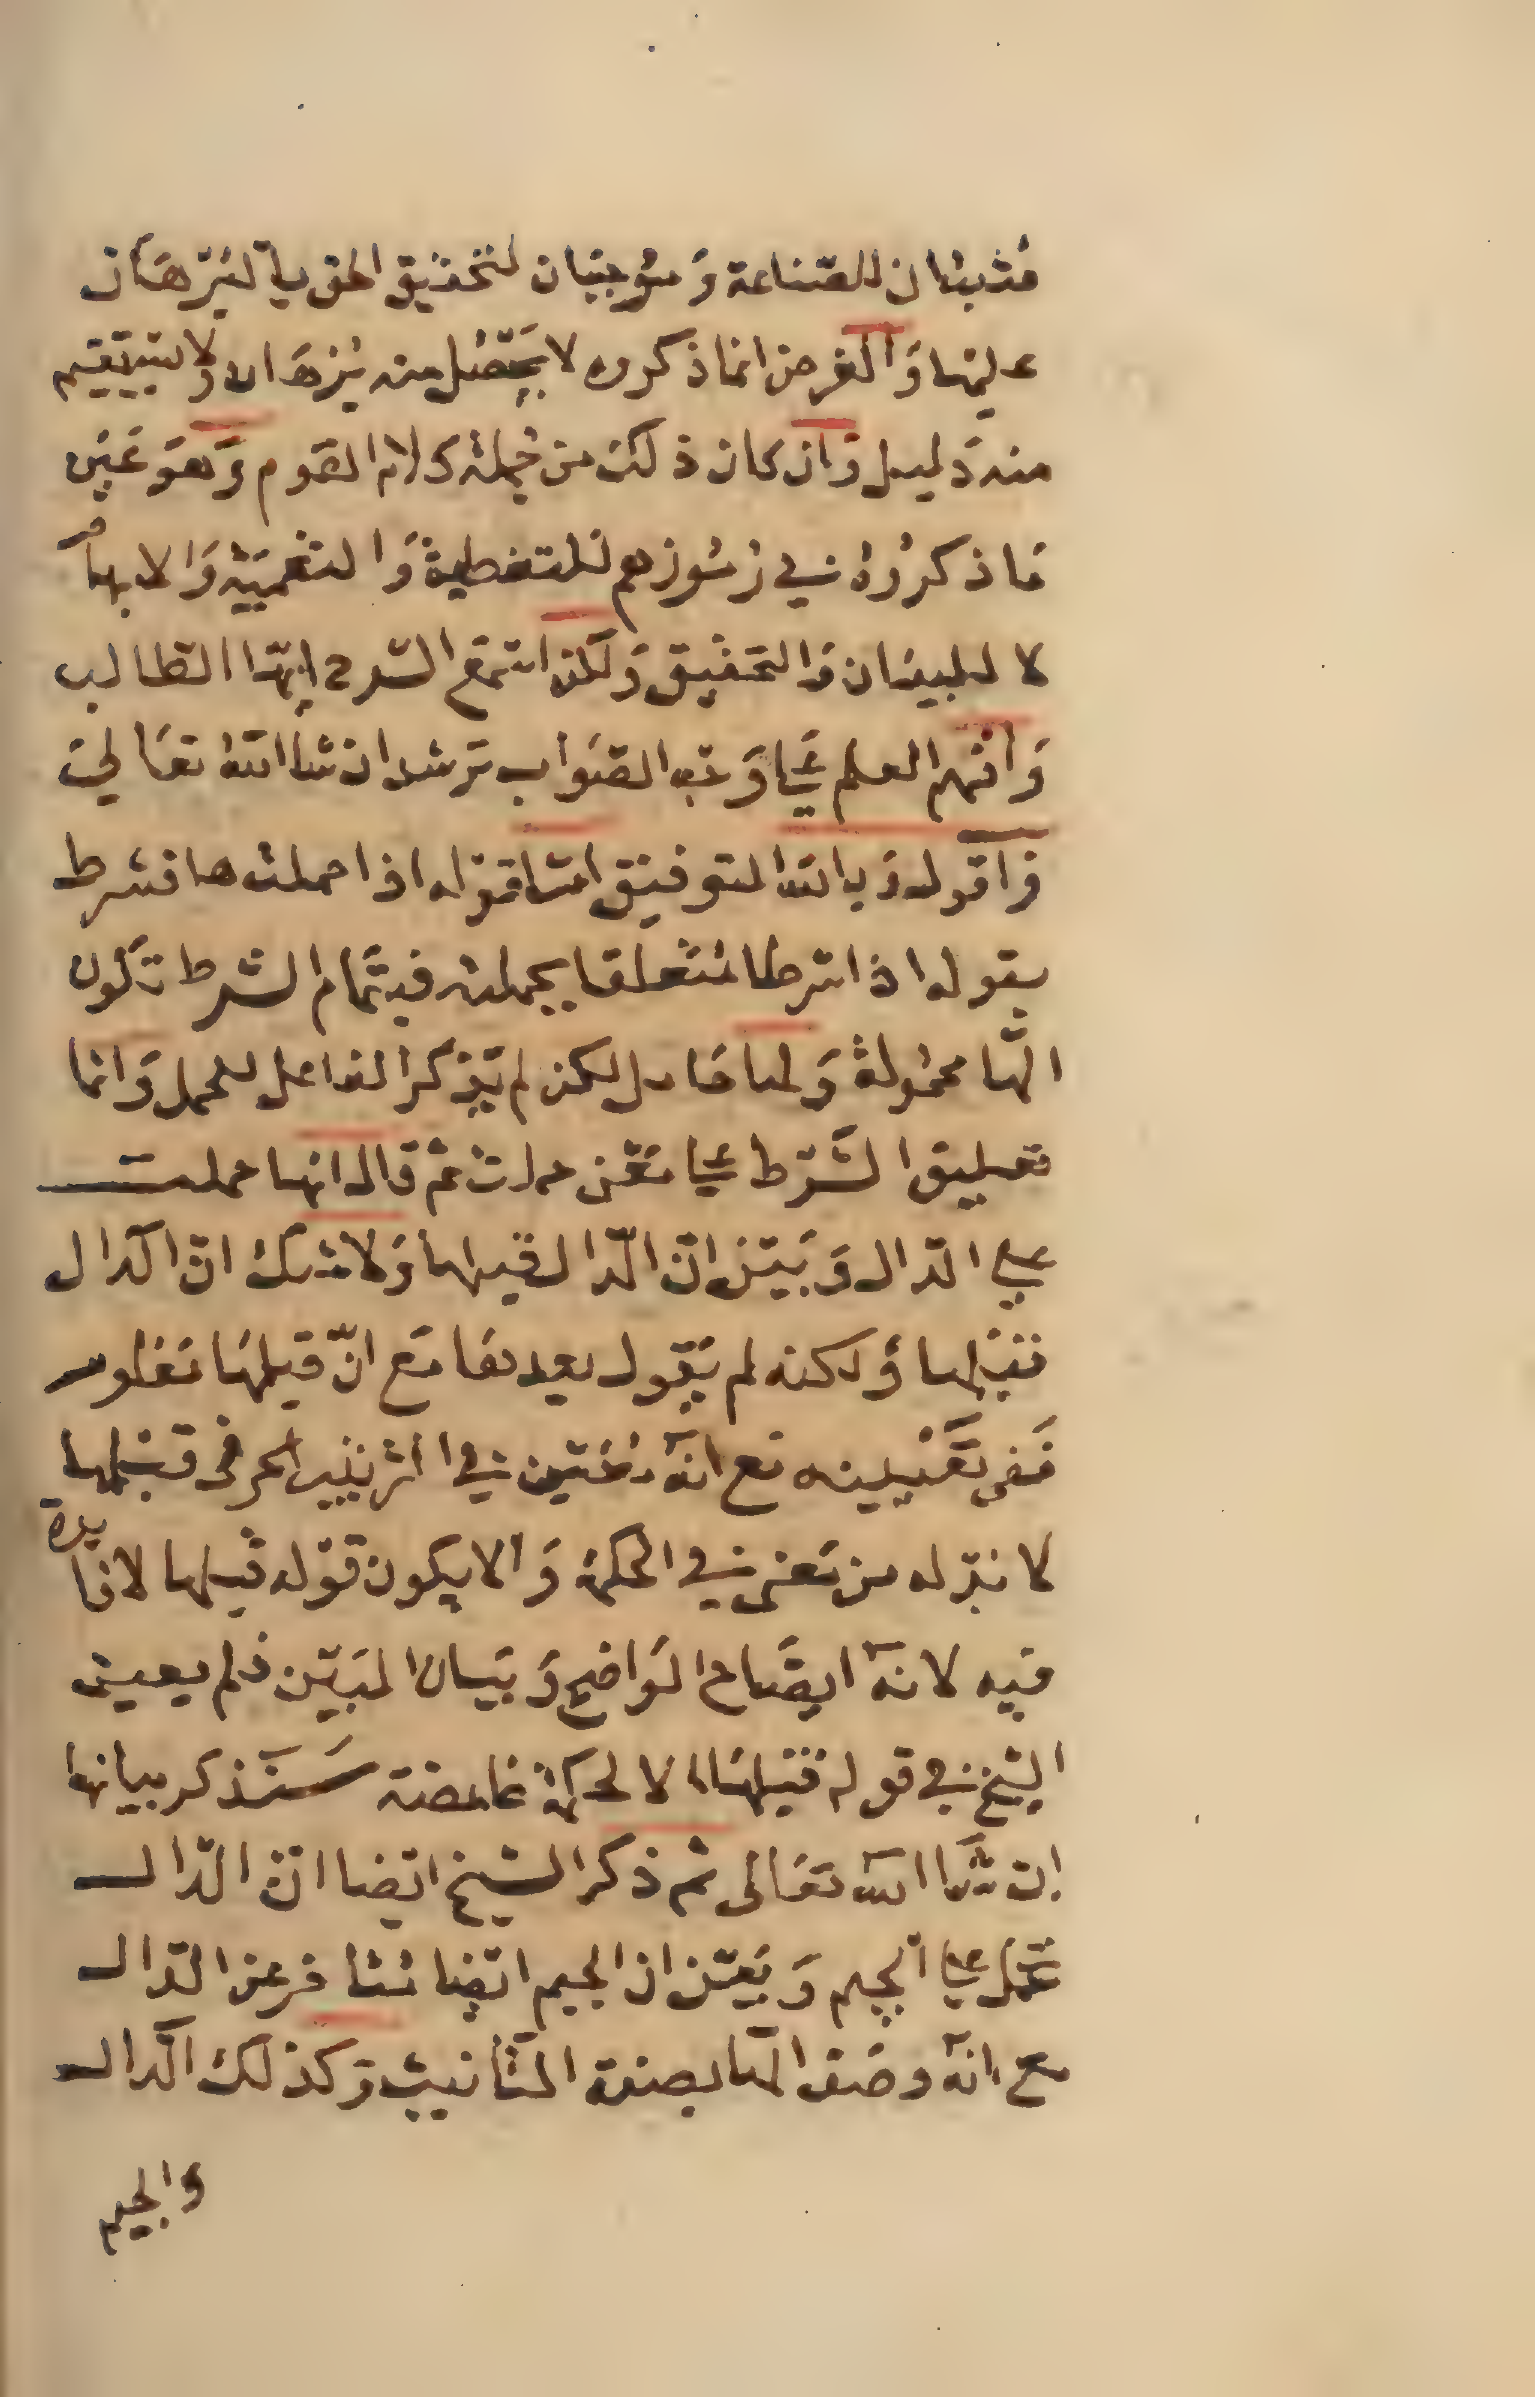 مثبتان للصناعة وموجبان لتحقيق الحق بالبرهان
عليها والغرض انما ذكروه لا يتحصل منه برهان ولا يستقيم
منه دليل وان كان ذلك من جملة كلام القوم وهو عين
ما ذكروه في رموزهم للتغطية والتعمية والابهام
لا للبيان والتحقيق ولكن استمع الشرح ايها الطالب
وافهم العلم على وجه الصواب ترشد ان شا الله تعالى
فاقول وبالله التوفيق اما قوله اذا حملت ها فشرط
بقوله اذا شرطا متعلقا بحملت فبتمام الشرط تكون
الها محمولة ولها حامل لكن لم يذكر الفاعل للحمل وانما
تعليق الشرط على معنى حملت ثم قال انها حملت
على الدال وبين ان الدال قبلها ولا شك ان الدال
قبلها ولكنه لم يقول بعدها مع ان قبلها معلوم
ففي تعيينه مع انه متعين في الترتيب الحرفى قبلها
لا بد له من معنى في الحكمة والا يكون قوله قبلها لا فايدة
فيه لانه ايضاح الواضح وبيان المبين فلم يعين
الشيخ في قوله قبلها الا لحكمة غامضة سنذكر بيانها
ان شا الله تعالى ثم ذكر الشيخ ايضا ان الدال
تحمل على الجيم ويعين ان الجيم ايضا الدال
مع انه وصف الها بصفة التانيث وكذلك الدال
والجيم